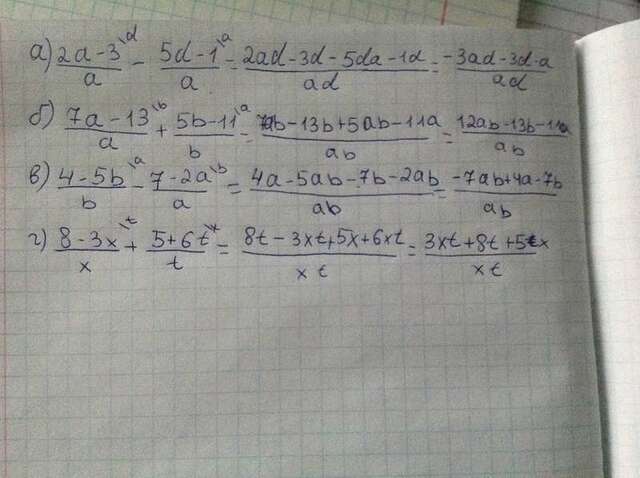 а) (2a-3)/a \d - (5d-1)/a \a = (2ad-3d-5da-1d)/ad = (-3ad-3d-a)/ad
б) (7a-13)/a \b + (5b-11)/b \a = (7ab-13b+5ab-11a)/ab = (12ab-13b-11a)/ab
в) (4-5b)/b \a - (7-2a)/a \b = (4a-5ab-7b-2ab)/ab = (-7ab+4a-7b)/ab
г) (8-3x)/x \t + (5+6t)/t \x = (8t-3xt+5x+6xt)/xt = (3xt+8t+5x)/xt